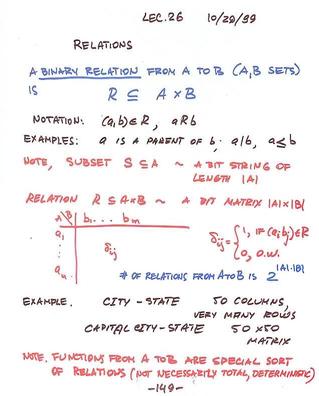 LEC.26 10/29/99
RELATIONS
A BINARY RELATION FROM A TO B (A,B SETS)
IS R ⊆ A×B
NOTATION: (a,b)∈R, aRb
EXAMPLES: a IS A PARENT OF b; a|b, a≤b
NOTE, SUBSET S⊆A ~ A BIT STRING OF
LENGTH |A|
RELATION R⊆A×B ~ A BIT MATRIX |A|×|B|
A\B b₁ ... bₘ
a₁
⋮
aₙ
δᵢⱼ
δᵢⱼ = { 1, IF (aᵢbⱼ)∈R
0, O.W.
# OF RELATIONS FROM A TO B IS 2^|A|·|B|
EXAMPLE. CITY - STATE 50 COLUMNS,
VERY MANY ROWS
CAPITAL CITY - STATE 50 x 50
MATRIX
NOTE. FUNCTIONS FROM A TO B ARE SPECIAL SORT
OF RELATIONS (NOT NECESSARILY TOTAL, DETERMINISTIC)
-149-